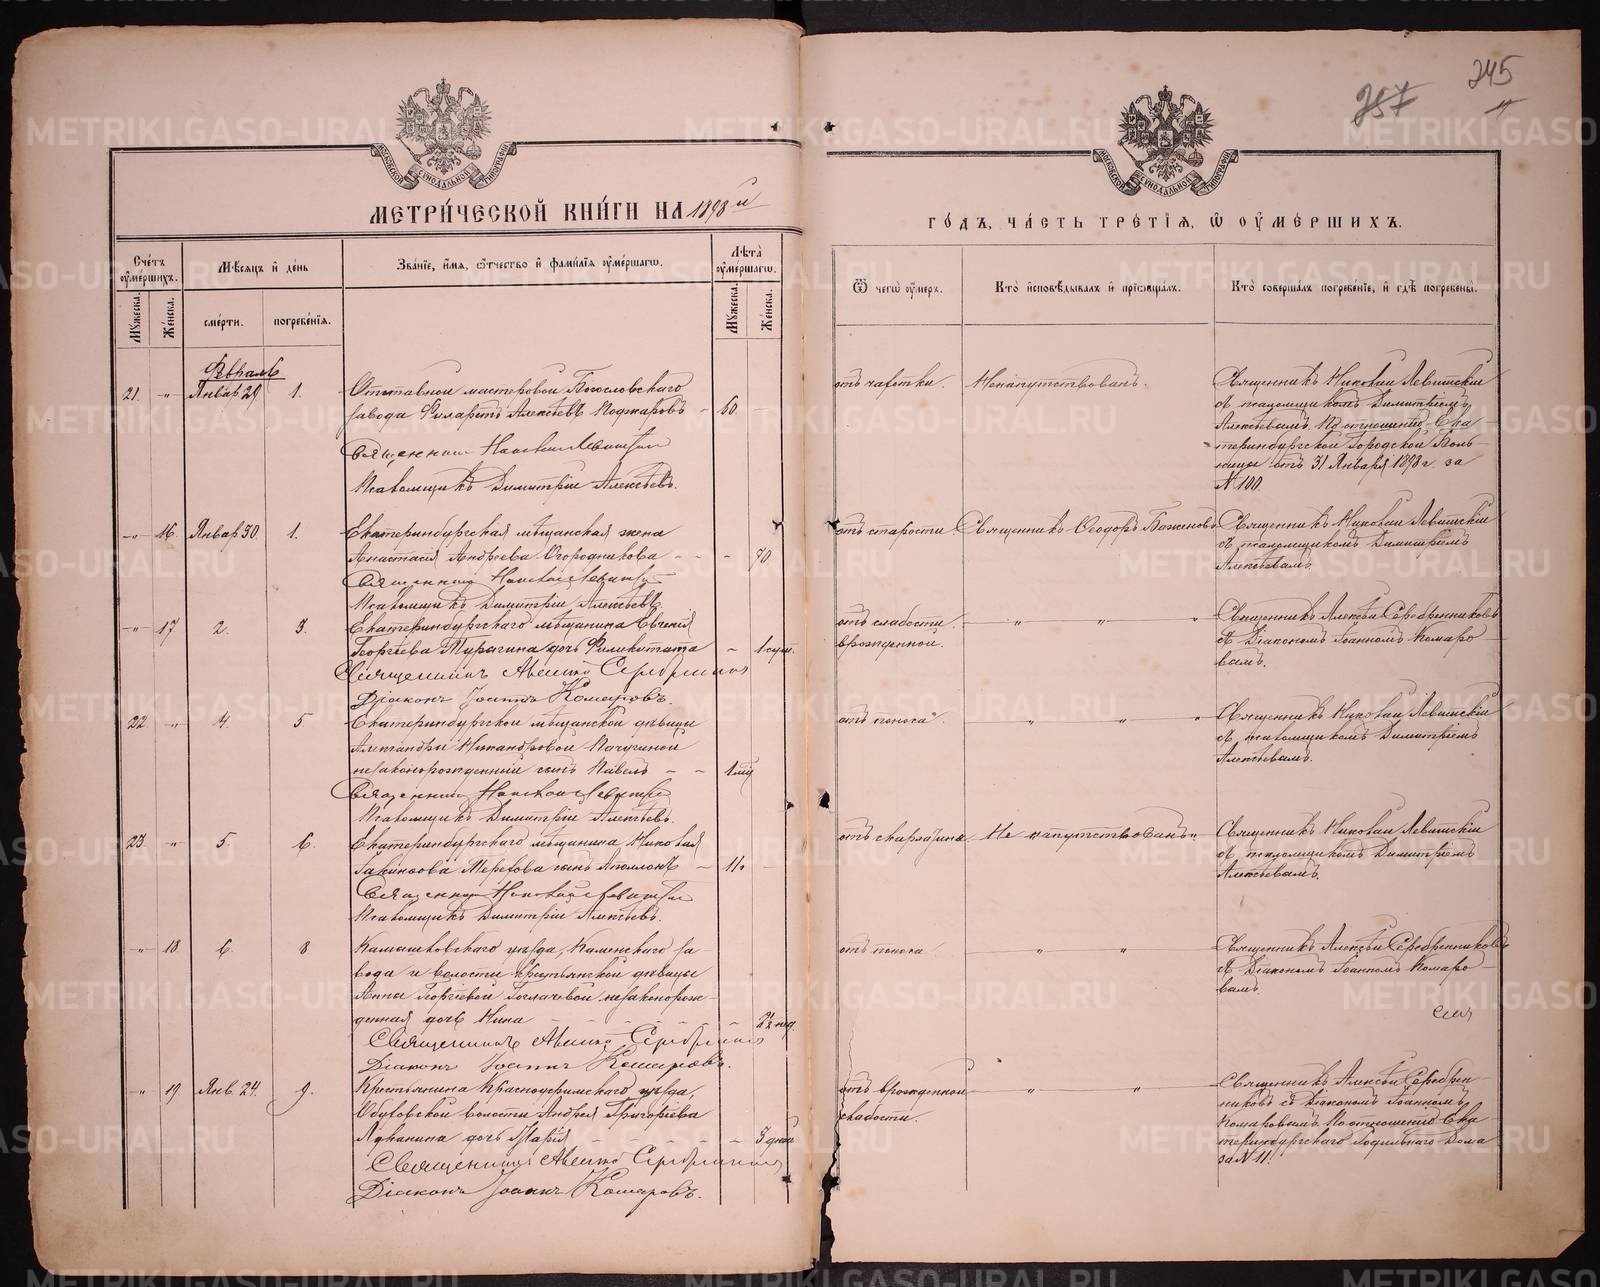 245
257
МОСКОВСКОЙ СѴНОДАЛЬНОЙ ТИПОГРАФІИ
МОСКОВСКОЙ СѴНОДАЛЬНОЙ ТИПОГРАФІИ
МЕТРИ́ЧЕСКОЙ КНИ́ГИ НА 1898й
ГО́ДЪ, ЧА́СТЬ ТРЕ́ТІЯ, Ѿ ОУ҆МЕ́РШИХЪ.
Сче́тъ оу҆ме́ршихъ.
Мѣ́сяцъ и҆ де́нь
Зва́ніе, и҆́мя, ѻ҆́тчество и҆ фами́лія оу҆ме́ршагѡ.
Лѣ́та оу҆ме́ршагѡ.
Ѿ чегѡ̀ оу҆́меръ.
Кто̀ и҆сповѣ́дывалъ и҆ прїѡбща́лъ.
Кто̀ соверша́лъ погребе́ніе, и҆ гдѣ̀ погребены̀.
Мꙋ́жеска.
Же́нска.
сме́рти.
погребе́нія.
Мꙋ́жеска.
Же́нска.
Февраль
21. -"- Январ 29 1. Отставной мастеровой Богословскаго
завода Филаретъ Алексѣевъ Пожаровъ - 60 -
Священник Николай Левитский
Псаломщикъ Димитрій Алексѣевъ.
отъ чахотки. Ненапутствованъ.
Священникъ Николай Левитскій
съ псаломщикомъ Димитріемъ
Алексѣевымъ. По отношенію Ека
теринбургской Городской Боль-
ницы отъ 31 Января 1898 г. за
№ 100.
-"- 16. Январ 30 1. Екатеринбургская мѣщанская жена
Анастасія Андреева Огородникова - - - 70
Священник Николай Левитский
Псаломщикъ Димитрій Алексѣевъ.
отъ старости. Священникъ Ѳеодоръ Баженовъ
Священникъ Николай Левитскій
съ псаломщикомъ Димитріемъ
Алексѣевымъ.
-"- 17. 2. 3. Екатеринбургскаго мѣщанина Евгенія
Георгіева дочь Филикитата - 1 сут.
Священникъ Алексѣй Серебренников
Діаконъ Іоаннъ Комаровъ.
отъ слабости - " " "
врожденной.
Священникъ Алексѣй Серебренниковъ
съ Діакономъ Іоанномъ Комаро
вымъ.
22. " 4 5. Екатеринбургской мѣщанской дѣвицы
Александры Никандровой
незаконорожденный сынъ Павелъ - - 1 мѣс
Священник Николай Левитский
Псаломщикъ Димитрій Алексѣевъ.
отъ поноса - " " "
Священникъ Николай Левитскій
съ псаломщикомъ Димитріемъ
Алексѣевымъ.
23 " 5. 6. Екатеринбургскаго мѣщанина Николая
сынъ Аполлонъ - 11
Священник Николай Левитский
Псаломщикъ Димитрій Алексѣевъ.
отъ скарлатина Не напутствованъ "
Священникъ Николай Левитскій
съ псаломщикомъ Димитріемъ
Алексѣевымъ.
-"- 18 6. 8. Камышловскаго уѣзда, Каменскаго за-
вода и волости крестьянской дѣвицы
Анны Георгіевой незаконорож-
денная дочь Нина - 2½ нед.
Священникъ Алексѣй Серебренников
Діаконъ Іоаннъ Комаровъ.
отъ поноса " "
Священникъ Алексѣй Серебренниковъ
съ Діакономъ Іоанномъ Комаро
вымъ.
-"- 19. Янв. 24. 9. Крестьянина Красноуфимскаго уѣзда,
волости Андрея Григоріева
Лужанина дочь Марія - - - 3 дней
Священникъ Алексѣй Серебренников
Діаконъ Іоаннъ Комаровъ.
отъ врожденной - " "
слабости.
Священникъ Алексѣй Серебрен
никовъ съ Діакономъ Іоанномъ
Комаровымъ. По отношенію Ека
теринбургскаго Родильнаго Дома
за № 11.